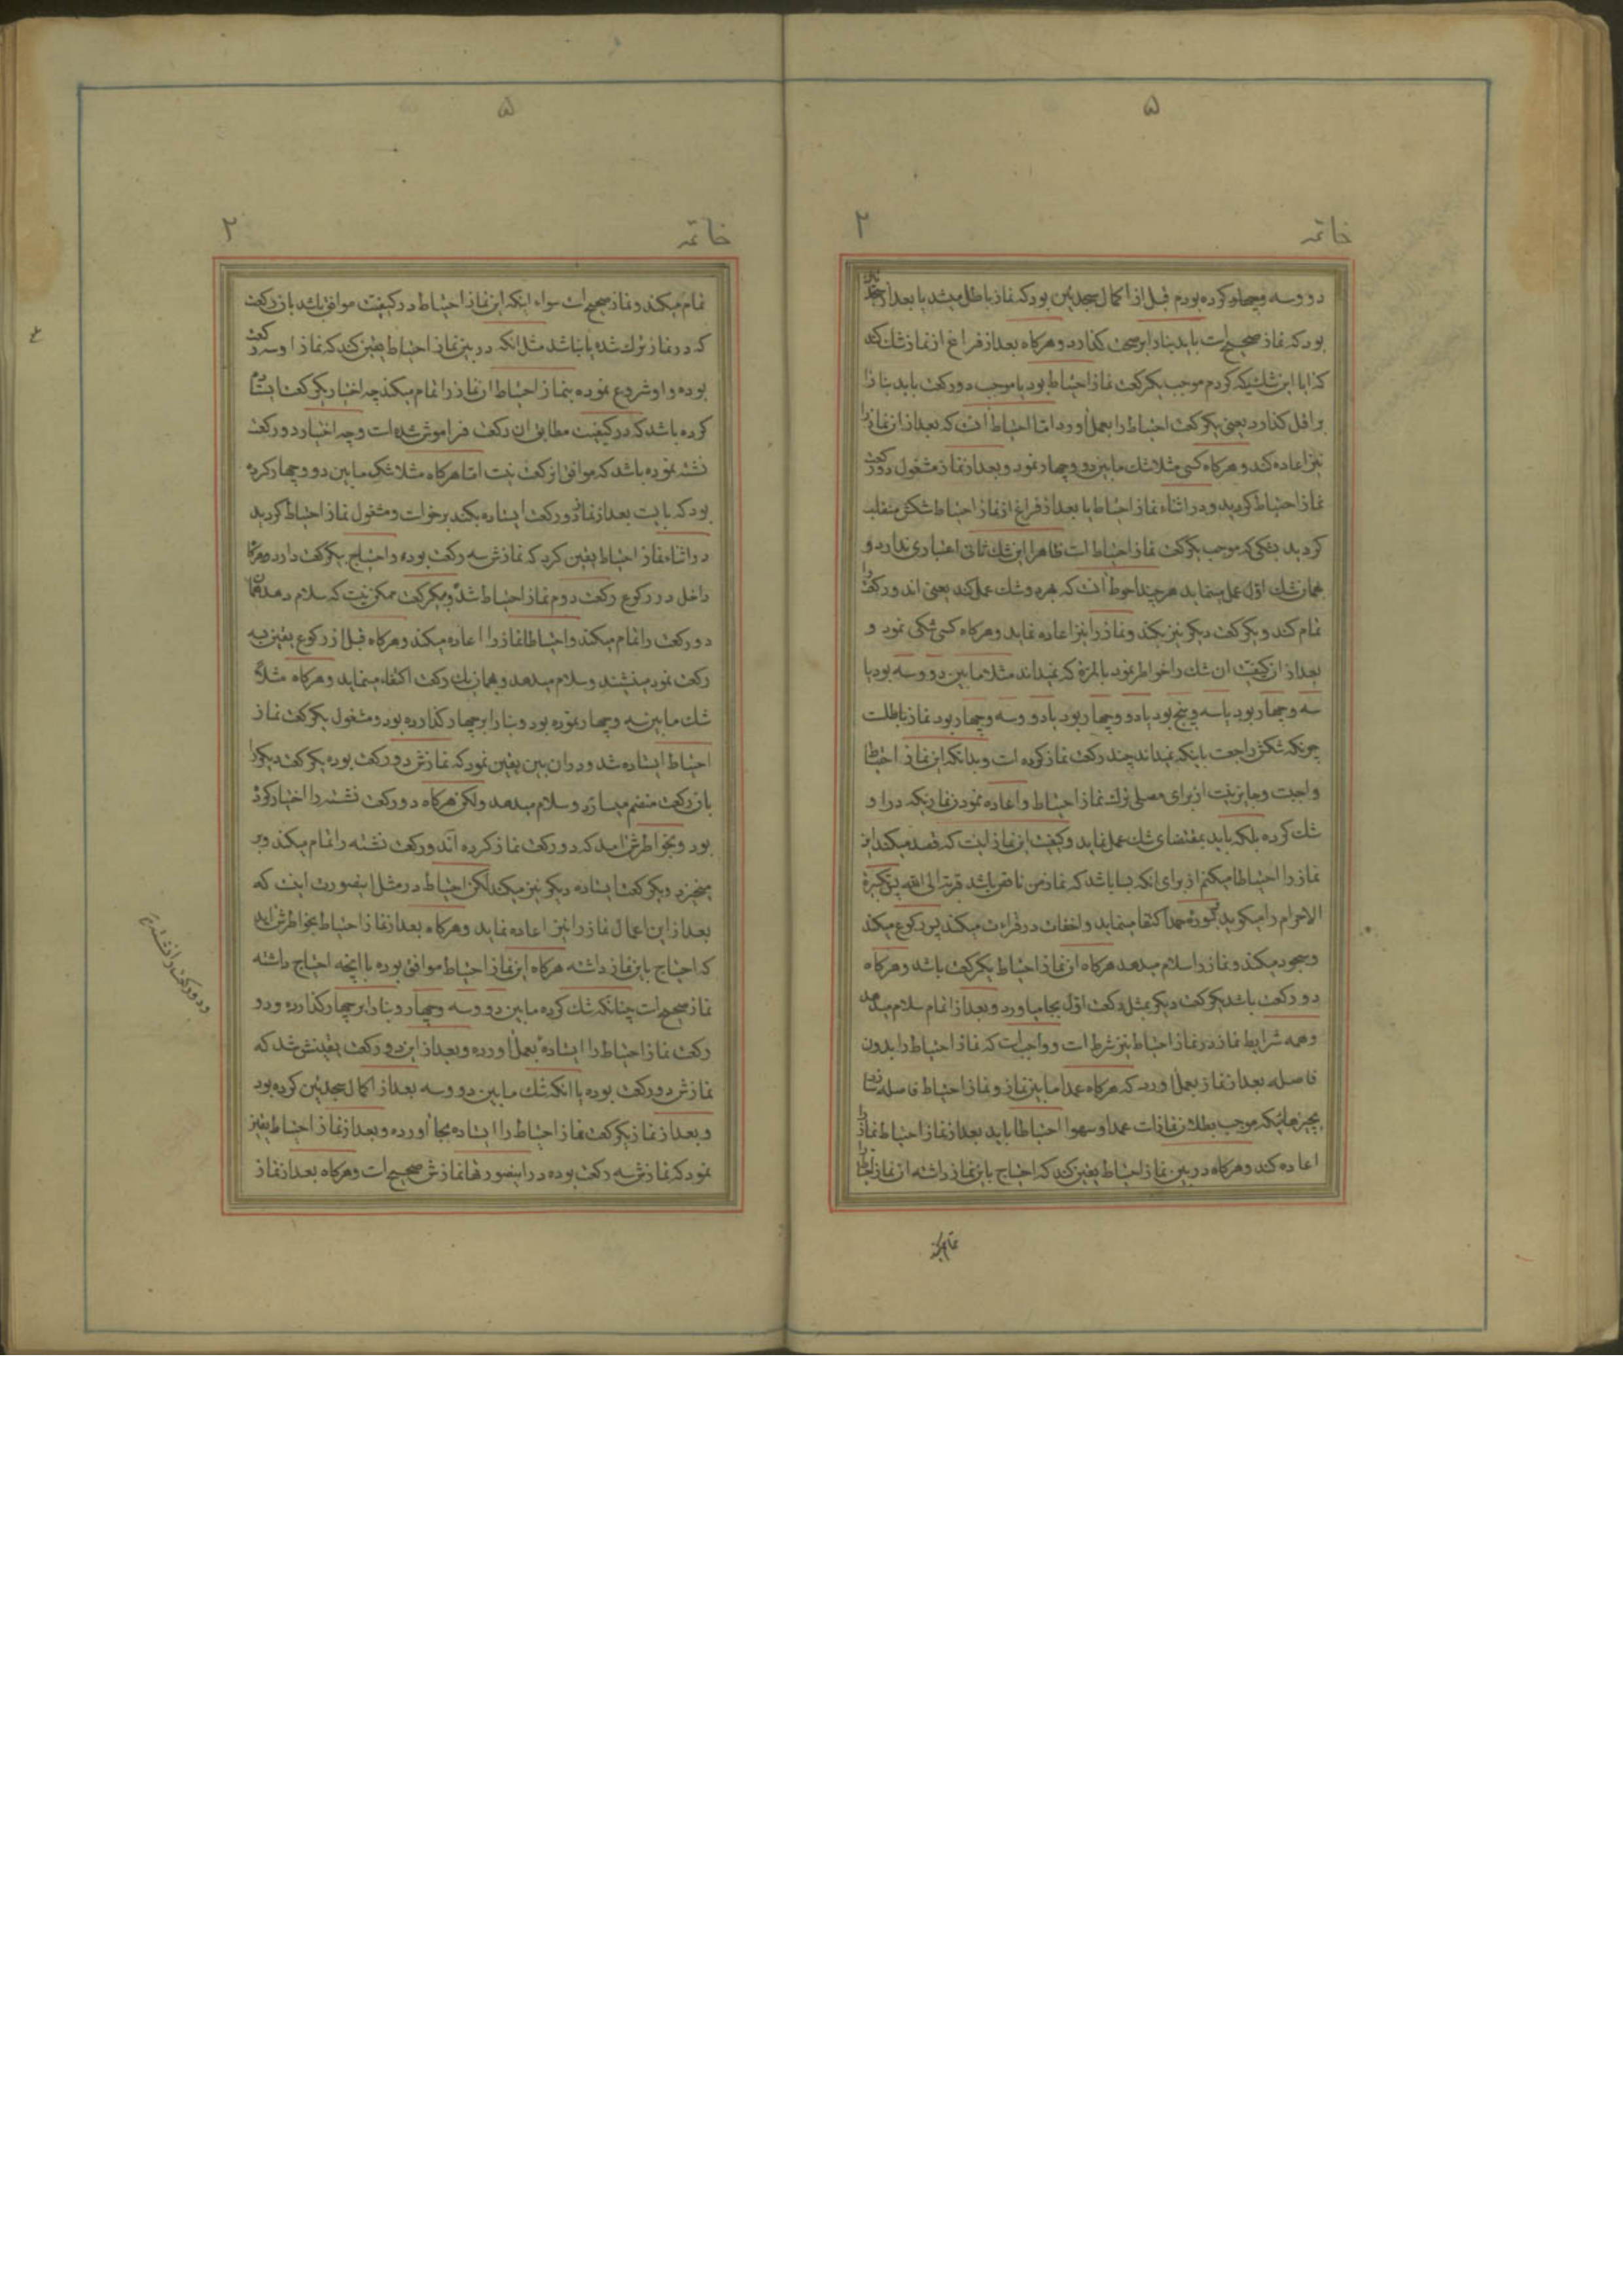 ۵
خاتمه ۲
دو و سه و چهار کرده بودم قبل از اکمال سجدتین بود که نماز باطل میشد یا بعد از
بود که نماز صحیح است باید بنا را بر صحت گذارد و هرگاه بعد از فراغ از نماز شک کند
که ایا این شکیکه کردم موجب یکرکعت نماز احتیاط بود یا موجب دو رکعت باید بنا را
بر اقل گذارد یعنی یکرکعت احتیاط را بعمل اورد اما احتیاط انست که بعد از ان نماز را
نیز اعاده کند و هرگاه کسی مثلا شک مابین دو و چهار نمود و بعد از نماز مشغول دو رکعت
نماز احتیاط گردید و در اثناء نماز احتیاط یا بعد از فراغ از نماز احتیاط شکش منقلب
گردید بشکی که موجب یکرکعت نماز احتیاط است ظاهرا این شک ثانی اعتباری ندارد و
همان شک اول عمل مینماید هر چند احوط انست که بهر دو شک عمل کند یعنی ان دو رکعت را
تمام کند و یکرکعت دیگر نیز بکند و نماز را نیز اعاده نماید و هرگاه کسی شکی نمود و
بعد از ان کیفیت ان شک را خواطر نمود بالمره که نمیداند مثلا مابین دو و سه بود یا
سه و چهار بود یا سه و پنج بود یا دو و چهار بود یا دو و سه و چهار بود نماز باطلست
چونکه شکش راجعست باینکه نمیداند چند رکعت نماز کرده است و بدانکه این نماز احتیاط
واجبست و جایز نیست از برای مصلی ترک نماز احتیاط و اعاده نمودن نمازیکه در او
شک کرده بلکه باید بمقتضای شک عمل نماید و کیفیت این نماز اینست که قصد میکند این
نماز را احتیاطا میکنم از برای انکه بسا باشد که نماز من ناقص باشد قربة الی الله پس تکبیرة
الاحرام را میگوید بسوره حمد اکتفا مینماید و اخفات در قراءت میکند پس رکوع میکند
و سجود میکند و نماز را سلام میدهد هرگاه ان نماز احتیاط یکرکعت باشد و هرگاه
دو رکعت باشد یکرکعت دیگر بمثل رکعت اول بجا میاورد و بعد از اتمام سلام میدهد
و همه شرایط نماز در نماز احتیاط نیز شرط است و واجب است که نماز احتیاط را بدون
فاصله بعد از نماز بعمل اورد که هرگاه عمدا مابین نماز و نماز احتیاط فاصله
بچیزهائیکه موجب بطلان نماز است عمدا و سهوا احتیاطا باید بعد از نماز احتیاط نماز را
اعاده کند و هرگاه در بین نماز احتیاط یقین کند که احتیاج باین نماز داشته ان نماز احتیاط را
تمام میکند
۵
خاتمه ۲
تمام میکند و نماز صحیح است سواء اینکه این نماز احتیاط در کیفیت موافق باشد با ان رکعت
که در نماز ترک شده یا نباشد مثل انکه در بین نماز احتیاط یقین کند که نماز او سه رکعت
بوده و او شروع نموده بنماز احتیاط ان نماز را تمام میکند چه اختیار یکرکعت ایستاده
کرده باشد که در کیفیت مطابق ان رکعت فراموش شده است و چه اختیار دو رکعت
نشسته نموده باشد که موافق ان رکعت نیست اما هرگاه مثلا شک مابین دو و چهار کرده
بود که بایست بعد از نماز دو رکعت ایستاده بکند برخواست و مشغول نماز احتیاط گردید
در اثناء نماز احتیاط یقین کرد که نمازش سه رکعت بوده و احتیاج بیکرکعت دارد هرگاه
داخل در رکوع رکعت دوم نماز احتیاط شد و بیکرکعت ممکن نیست که سلام دهد همان
دو رکعت را تمام میکند و احتیاطا نماز را اعاده میکند و هرگاه قبل از رکوع یقین بسه
رکعت نمود مینشیند و سلام میدهد و بهمان یک رکعت اکتفاء مینماید و هرگاه مثلا
شک مابین سه و چهار نموده بود و بنا را بر چهار گذارده بود و مشغول یکرکعت نماز
احتیاط ایستاده شد و در ان بین یقین نمود که نمازش دو رکعت بوده یکرکعت دیگر را
بان رکعت منضم میسازد و سلام میدهد ولکن هرگاه دو رکعت نشسته را اختیار کرده
بود و بخواطرش امد که دو رکعت نماز کرده ان دو رکعت نشسته را تمام میکند و بر
میخیزد و یکرکعت ایستاده دیگر نیز میکند لکن احتیاط در مثل اینصورت اینست که
بعد از این اعمال نماز را نیز اعاده نماید و هرگاه بعد از نماز احتیاط بخواطرش اید
که احتیاج باین نماز داشته هرگاه این نماز احتیاط موافق بوده با انچه احتیاج داشته
نماز صحیح است چنانکه شک کرده مابین دو و سه و چهار و بنا را بر چهار گذارده و دو
رکعت نماز احتیاط را ایستاده بعمل اورده و بعد از این دو رکعت یقینش شد که
نمازش دو رکعت بوده یا انکه شک مابین دو و سه بعد از اکمال سجدتین کرده بود
و بعد از نماز یکرکعت نماز احتیاط را ایستاده بجا اورده و بعد از نماز احتیاط یقین
نمود که نمازش سه رکعت بوده در اینصورتها نمازش صحیح است و هرگاه بعد از نماز
و دو رکعت را نشسته